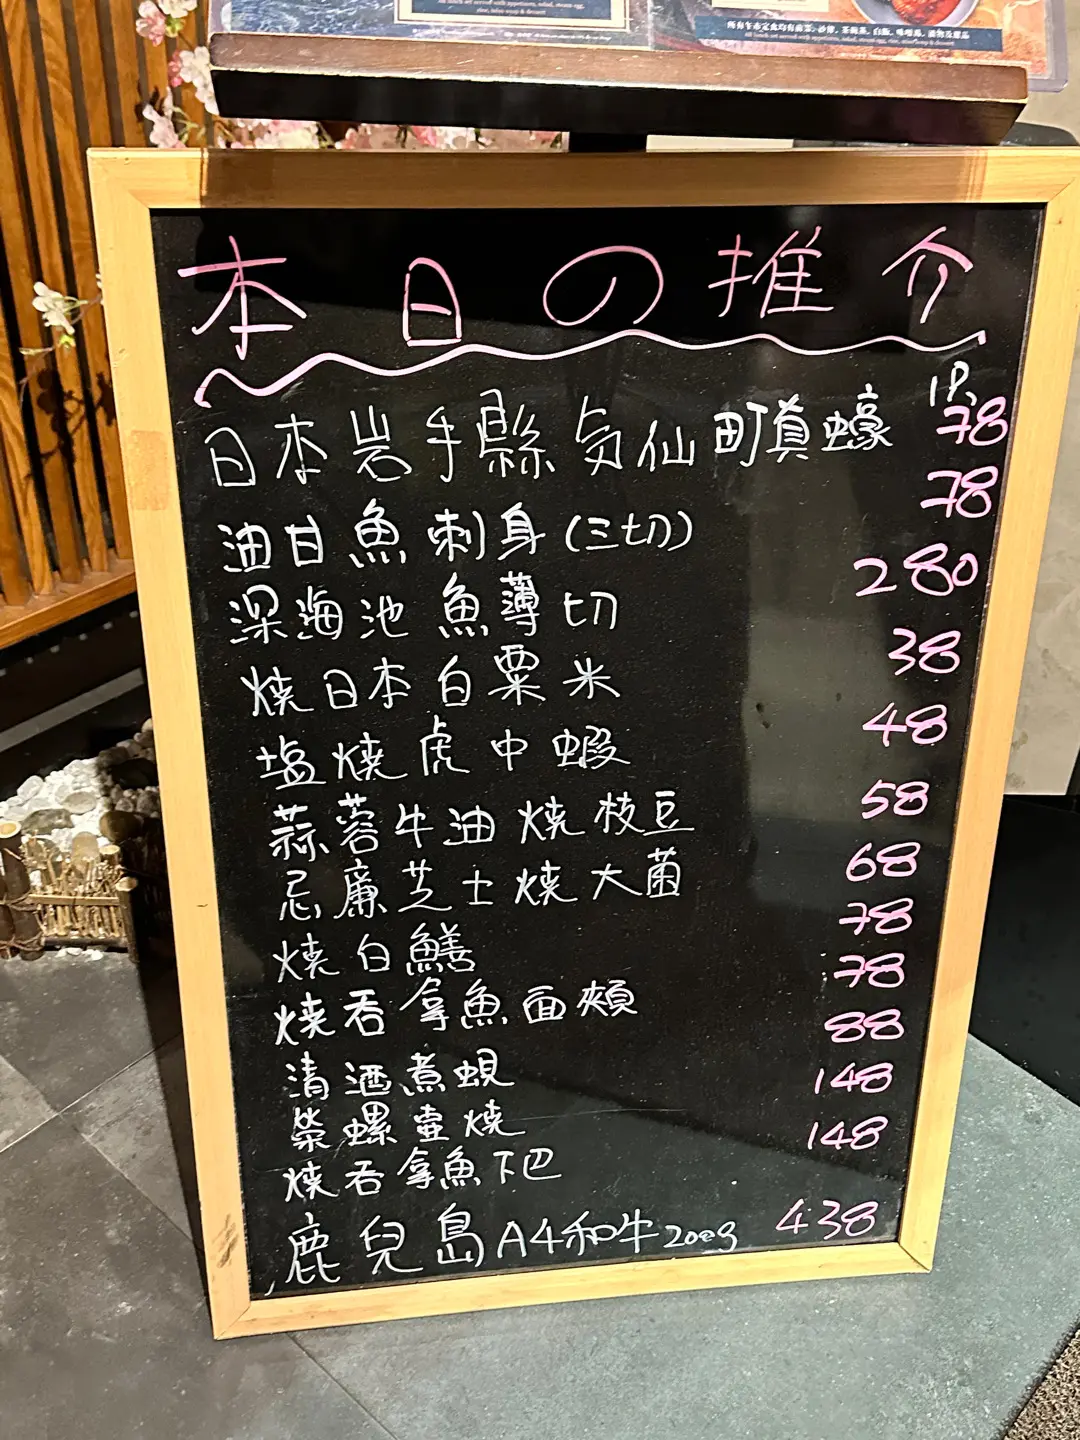 所有午市定食均有前菜, 沙律, 茶碗蒸, 白飯, 味噌湯, 漬物及甜品
All lunch set served with appetizers, salad, steam egg, rice, miso soup & dessert
本日の推介
1P.
日本岩手縣気仙町真蠔 78
油甘魚刺身(三切) 78
深海池魚薄切 280
燒日本白粟米 38
塩燒虎中蝦 48
蒜蓉牛油燒枝豆 58
忌廉芝士燒大菌 68
燒白鱔 78
燒吞拿魚面頰 78
清酒煮蜆 88
榮螺壷燒 148
燒吞拿魚下巴 148
鹿兒島A4和牛200g 438